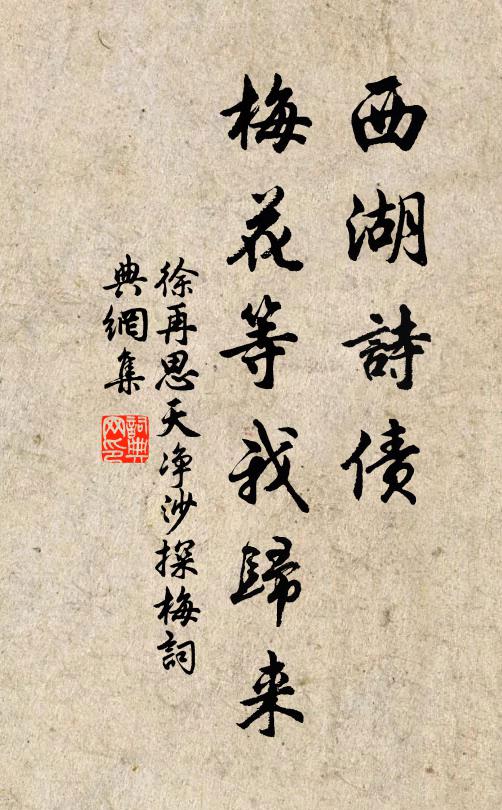 西湖詩債
梅花等我歸来
徐再思天净沙探梅詞
典網集
詞典网印